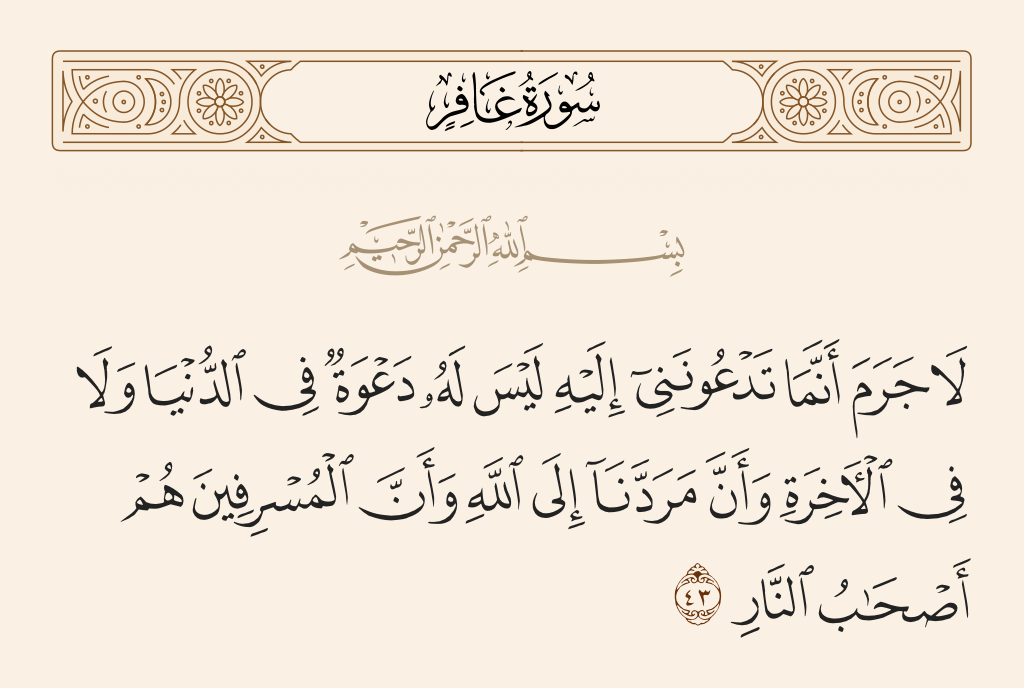 سُورَةُ غَافِرٍ
بِسْمِ ٱللَّهِ ٱلرَّحْمَٰنِ ٱلرَّحِيمِ
لَا جَرَمَ أَنَّمَا تَدْعُونَنِىٓ إِلَيْهِ لَيْسَ لَهُۥ دَعْوَةٌ فِى ٱلدُّنْيَا وَلَا
فِى ٱلْـَٔاخِرَةِ وَأَنَّ مَرَدَّنَآ إِلَى ٱللَّهِ وَأَنَّ ٱلْمُسْرِفِينَ هُمْ
أَصْحَٰبُ ٱلنَّارِ ٤٣